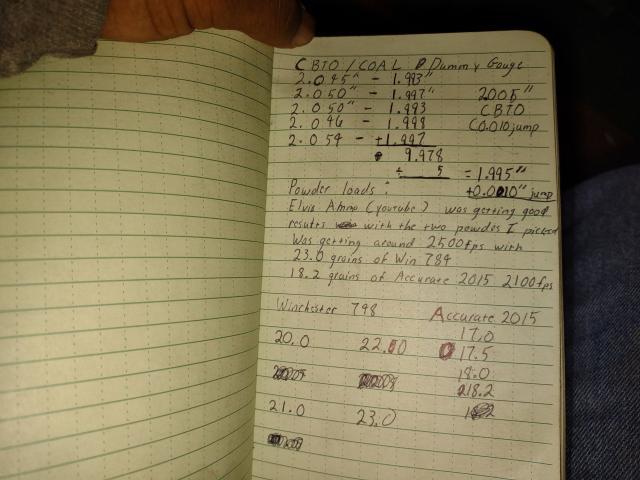 CBTO / COAL Dummy Gauge
2.045" - 1.993"
2.050" - 1.997" 2005"
2.050" - 1.993 CBTO
2.046 - 1.998 C0.010 jump
2.054 - +1.997
9.978
÷ 5 = 1.995"
Powder loads: +0.0010" jump
Elvis Ammo (youtube) was getting good
results with the two powdes I picked
Was getting around 2500fps with
23.0 grains of Win 784
18.2 grains of Accurate 2015 2100fps
Winchester 798 Accurate 2015
20.0 22.0 17.0
17.5
18.0
21.0 23.0 218.2